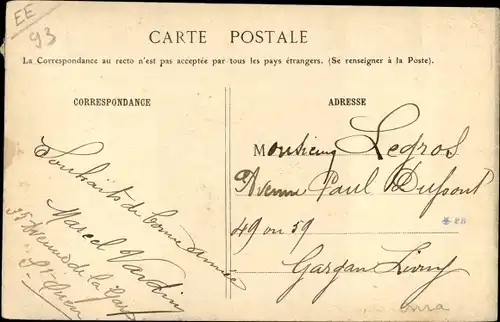 EE
93
CARTE POSTALE
La Correspondance au recto n'est pas acceptée par tous les pays étrangers. (Se renseigner à la Poste).
CORRESPONDANCE
Souhaits de bonne année
Marcel
35 Avenue de la Gare
St Ouen
ADRESSE
Monsieur Legros
Avenue Paul Dupont
49 ou 59
Gargan Livry